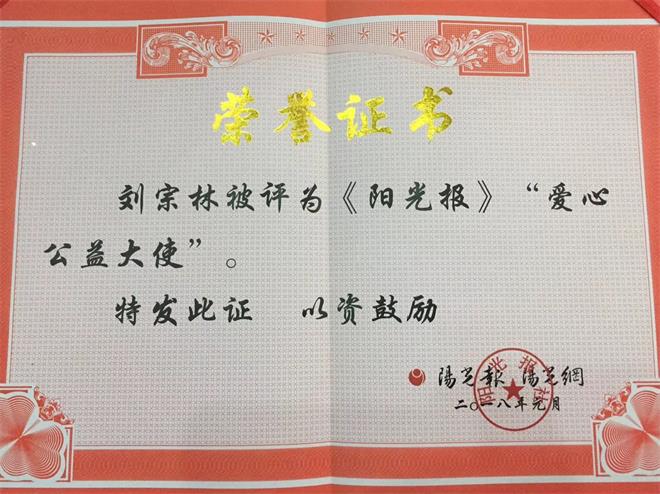 荣誉证书
刘宗林被评为《阳光报》“爱心
公益大使”。
特发此证 以资鼓励
陽光報 陽光網
阳光报社
二〇一八年元月